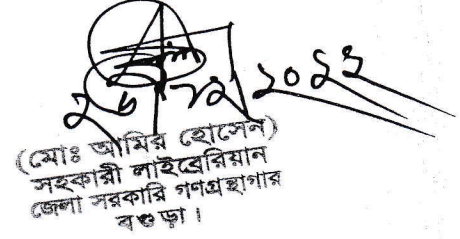 (মোঃ আমির হোসেন)
সহকারী লাইব্রেরিয়ান
জেলা সরকারি গণগ্রন্থাগার
বগুড়া।